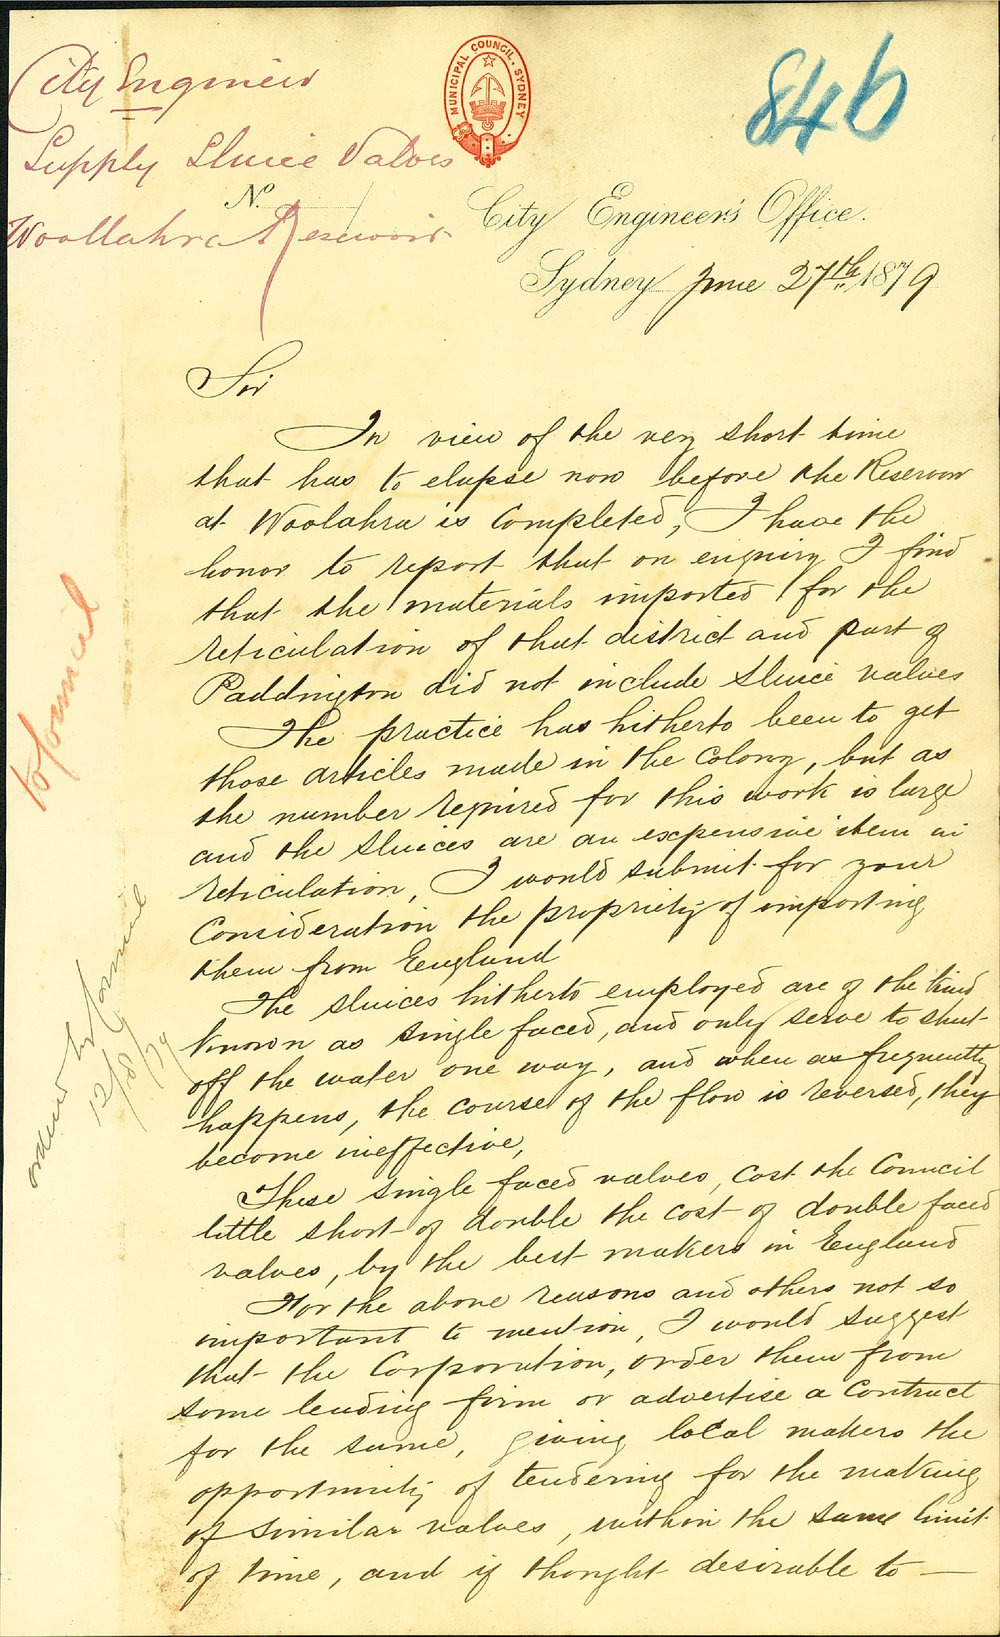 City Engineer
Supply Sluice Valves
Woollahra Reservoir
MUNICIPAL COUNCIL. SYDNEY
846
No.
City Engineer's Office.
Sydney June 27th 1879
Sir
In view of the very short time
that has to elapse now before the Reservoir
at Woolahra is completed, I have the
honor to report that on enquiry I find
that the materials imported for the
reticulation of that district and part of
Paddington did not include sluice valves
The practice has hitherto been to get
those articles made in the Colony, but as
the number required for this work is large
and the sluices are an expensive item in
reticulation, I would submit for your
Consideration the propriety of importing
them from England
The sluices hitherto employed are of the kind
known as single faced, and only serve to shut
off the water one way, and when as frequently
happens, the course of the flow is reversed, they
become ineffective,
These single faced valves, cost the Council
little short of double the cost of double faced
valves, by the best makers in England
For the above reasons and others not so
important to mention, I would suggest
that the Corporation, order them from
some leading firm or advertise a Contract
for the same, giving local makers the
opportunity of tendering for the making
of similar valves, within the same limit
of time, and if thought desirable to —
to Council
ordered by Council
12/8/79